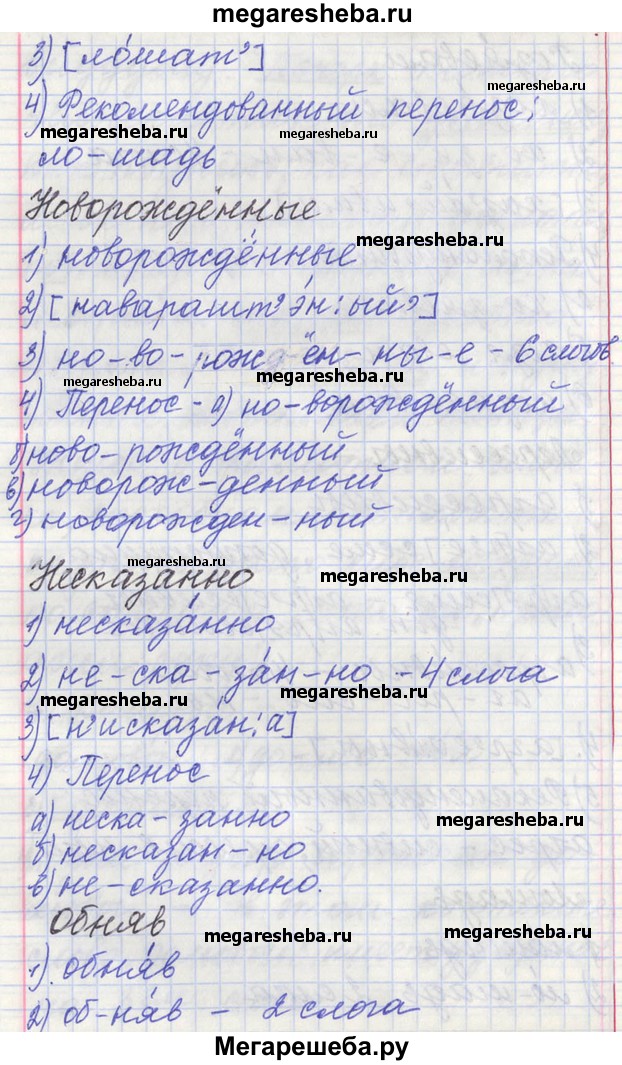 megaresheba.ru
3) [ло́шат']
4) Рекомендованный перенос:
megaresheba.ru megaresheba.ru
ло-шадь
Новорождённые
megaresheba.ru
1) новорождённые
2) [наварашт'э́н:ый']
3) но-во-рождён-ны-е - 6 слогов
megaresheba.ru megaresheba.ru
4) Перенос - а) но-ворождённый
б) ново-рождённый
в) новорож-денный
г) новорожден-ный
megaresheba.ru
Несказанно megaresheba.ru
1) несказа́нно
2) не-ска-за́н-но - 4 слога
megaresheba.ru megaresheba.ru
3) [н'исказа́н:а]
4) Перенос
а) неска-занно megaresheba.ru
б) несказан-но
в) не-сказанно.
Обняв
megaresheba.ru megaresheba.ru
1). обня́в
2) об-ня́в - 2 слога
Мегарешеба.ру